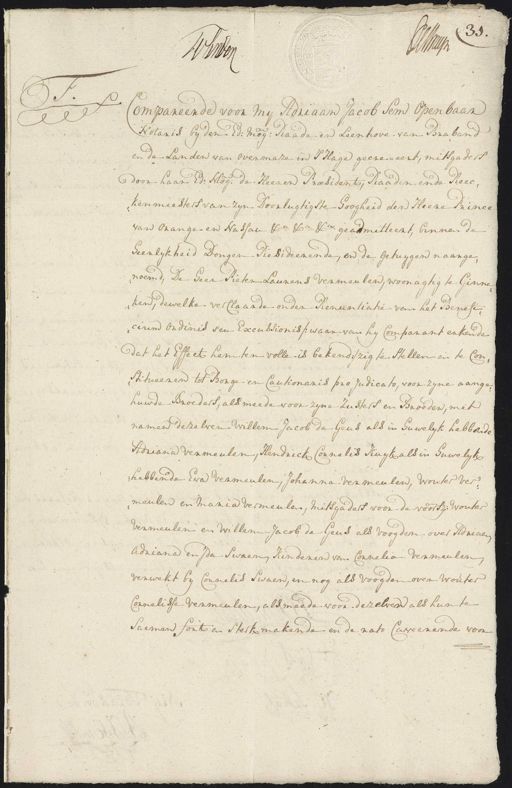 35.
F.
Compareerde voor my Adriaan Jacob Sem Openbaar
Notaris by den Ed: Mog: Raade en Leenhove van Braband
en de Landen van overmaze in S'Hage gecreeert, mitsgaders
door haar Ed: Mog: de Heeren Præsident, Raaden ende Reec-
kenmeesters van zyn Doorlugtigste Hoogheid den Heere Prince
van Orange en Nassau geadmitteert, binnen de
Heerlykheid Dongen Resideerende, en de getuygen naarge-
noemd, De Heer Pieter Laurens Vermeulen, woonagtig te Ginne-
ken, dewelke verclaarde onder Renuntiatie van het Benefi-
cium ordinis seu Excussionis, waar van hy Comparant erkende
dat het Effect hem ten volle is bekend, zig te Stellen en te Con-
stitueeren tot Borge en Cautionaris pro judicato, voor zyne aange-
huwde Broeders, als meede voor zyne Zusters en Broeders, met
namen dezelven Willem Jacob de Geus als in Huwelyk hebbende
Adriana Vermeulen, Hendrick Cornelis als in Huwelyk
hebbende Eva Vermeulen, Johanna Vermeulen, Wouter Ver-
meulen en Maria Vermeulen, mitsgaders voor de voorsz: Wouter
Vermeulen en Willem Jacob de Geus als Voogden over Adriaen,
Adriana en Ida Swaen, Kinderen van Cornelia Vermeulen,
verwekt by Cornelis Swaen, en nog als voogden over Wouter
Cornelisse Vermeulen, als meede voor dezelven als hun te
Saemen sterk makende en de rato Caveerende voor